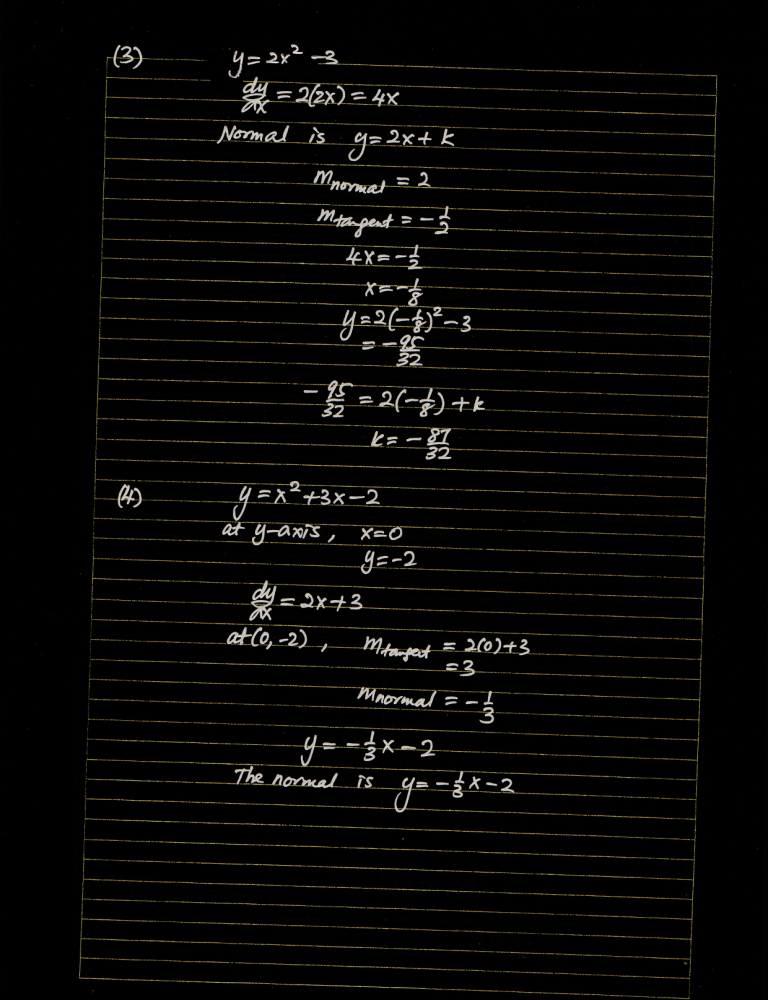 (3) y = 2x² - 3
dy/dx = 2(2x) = 4x
Normal is y = 2x + k
m normal = 2
m tangent = -1/2
4x = -1/2
x = -1/8
y = 2(-1/8)² - 3
= -95/32
-95/32 = 2(-1/8) + k
k = -87/32
(4) y = x² + 3x - 2
at y-axis, x = 0
y = -2
dy/dx = 2x + 3
at (0, -2), m tangent = 2(0) + 3
= 3
m normal = -1/3
y = -1/3 x - 2
The normal is y = -1/3 x - 2